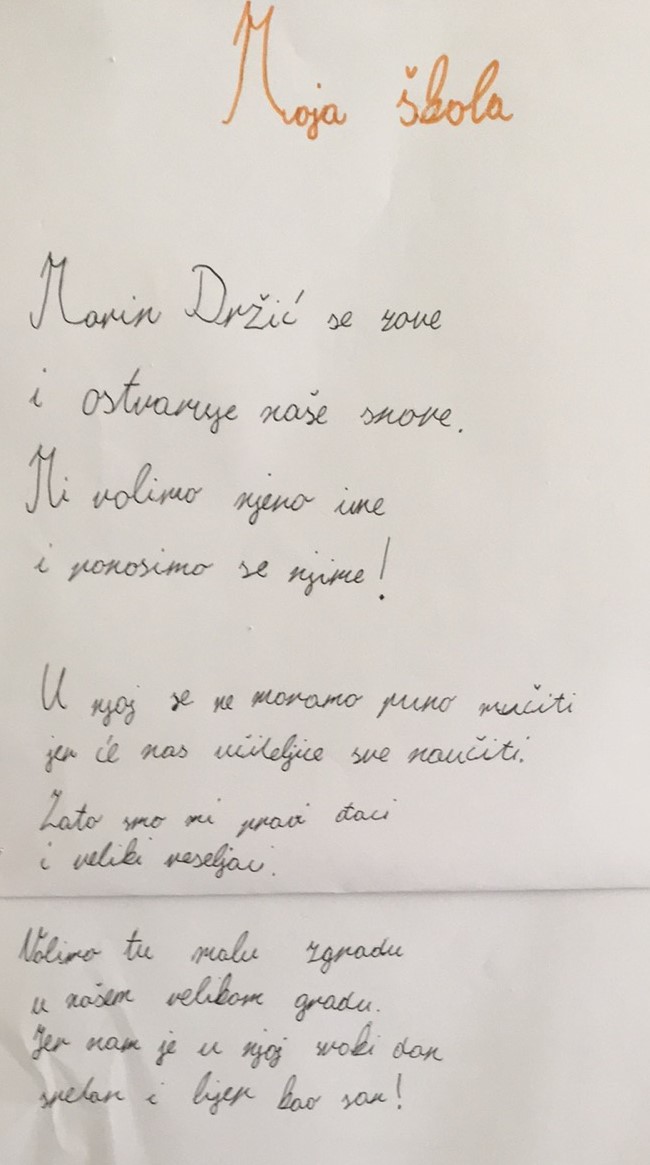 Moja škola
Marin Držić se zove
i ostvaruje naše snove.
Mi volimo njeno ime
i ponosimo se njime!
U njoj se ne moramo puno mučiti
jer će nas učiteljice sve naučiti.
Zato smo mi pravi đaci
i veliki veseljaci.
Volimo tu malu zgradu
u našem velikom gradu.
Jer nam je u njoj svaki dan
sretan i lijep kao san!